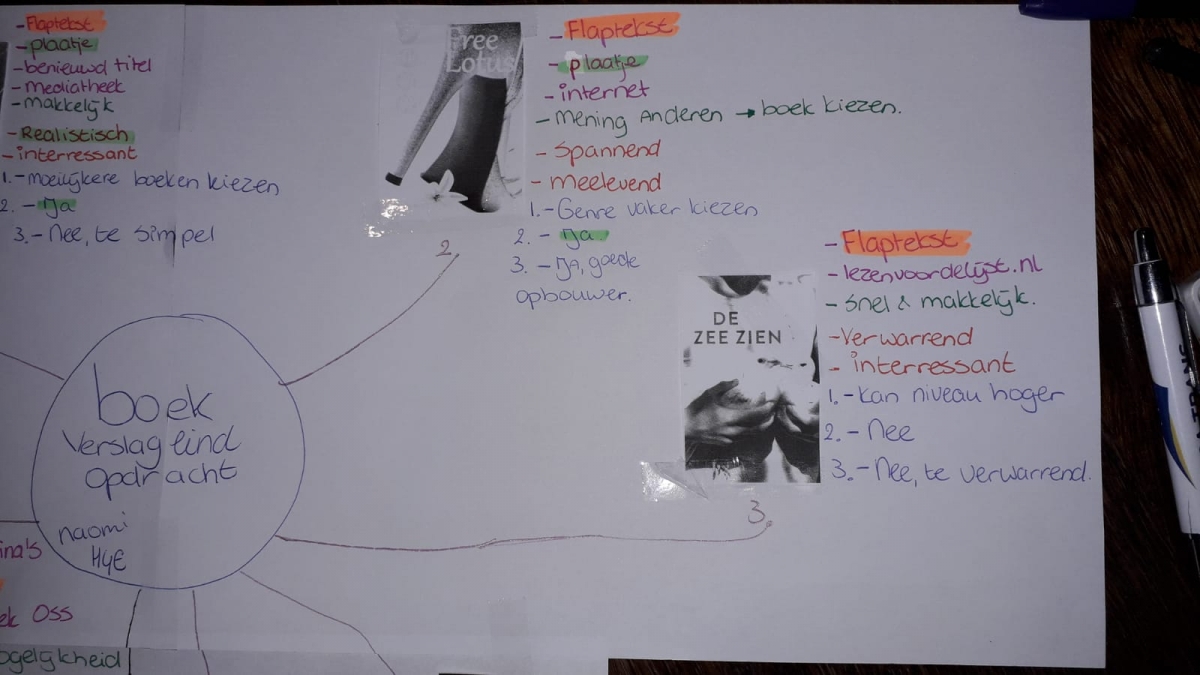 - Flaptekst
- plaatje
- benieuwd titel
- mediatheek
- makkelijk
- Realistisch
- interressant
1. - moeilijkere boeken kiezen
2. - Ja
3. - Nee, te simpel
Free
Lotus
2.
- Flaptekst
- plaatje
- internet
- Mening Anderen → boek kiezen.
- Spannend
- Meelevend
1. - Genre vaker kiezen
2. - Ja
3. - Ja, goede
opbouwer.
DE
ZEE ZIEN
3.
- Flaptekst
- lezenvoordelijst.nl
- Snel & makkelijk.
- Verwarrend
- interressant
1. - Kan niveau hoger
2. - Nee
3. - Nee, te verwarrend.
boek
Verslag eind
opdracht
naomi
H4E
Oss